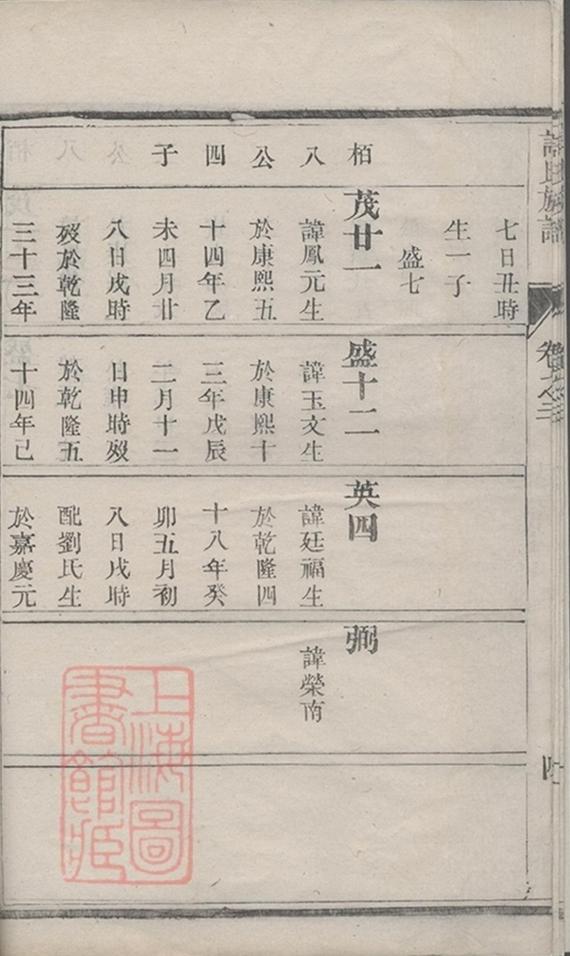 氏族譜
卷
栢八公四子
七日丑時
生一子
盛七
茂廿一
諱鳳元生
於康熙五
十四年乙
未四月廿
八日戌時
歿於乾隆
三十三年
盛十二
諱玉文生
於康熙十
三年戊辰
二月十一
日申時歿
於乾隆五
十四年己
英四
諱廷福生
於乾隆四
十八年癸
卯五月初
八日戌時
配劉氏生
於嘉慶元
弼
諱榮南
上海圖
書館藏